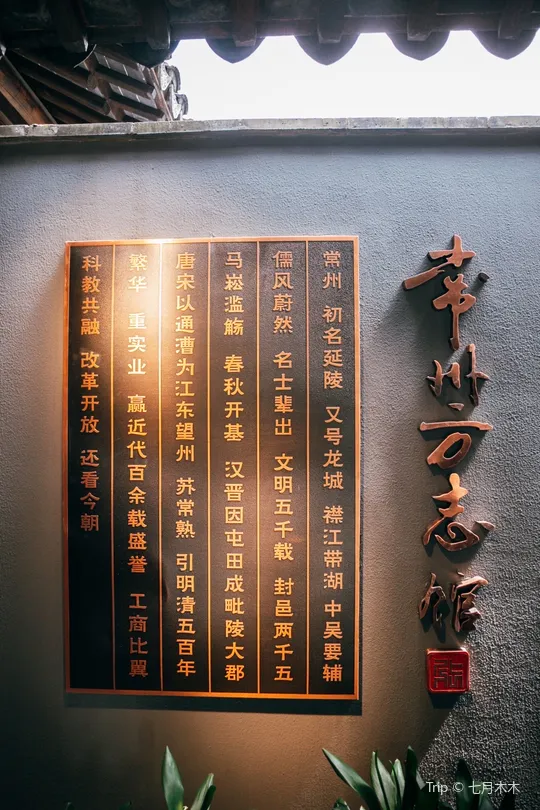 常州方志馆
常州 初名延陵 又号龙城 襟江带湖 中吴要辅
儒风蔚然 名士辈出 文明五千载 封邑两千五
马崧滥觞 春秋开基 汉晋因屯田成毗陵大郡
唐宋以通漕为江东望州 苏常熟 引明清五百年
繁华 重实业 赢近代百余载盛誉 工商比翼
科教共融 改革开放 还看今朝
Trip © 七月木木